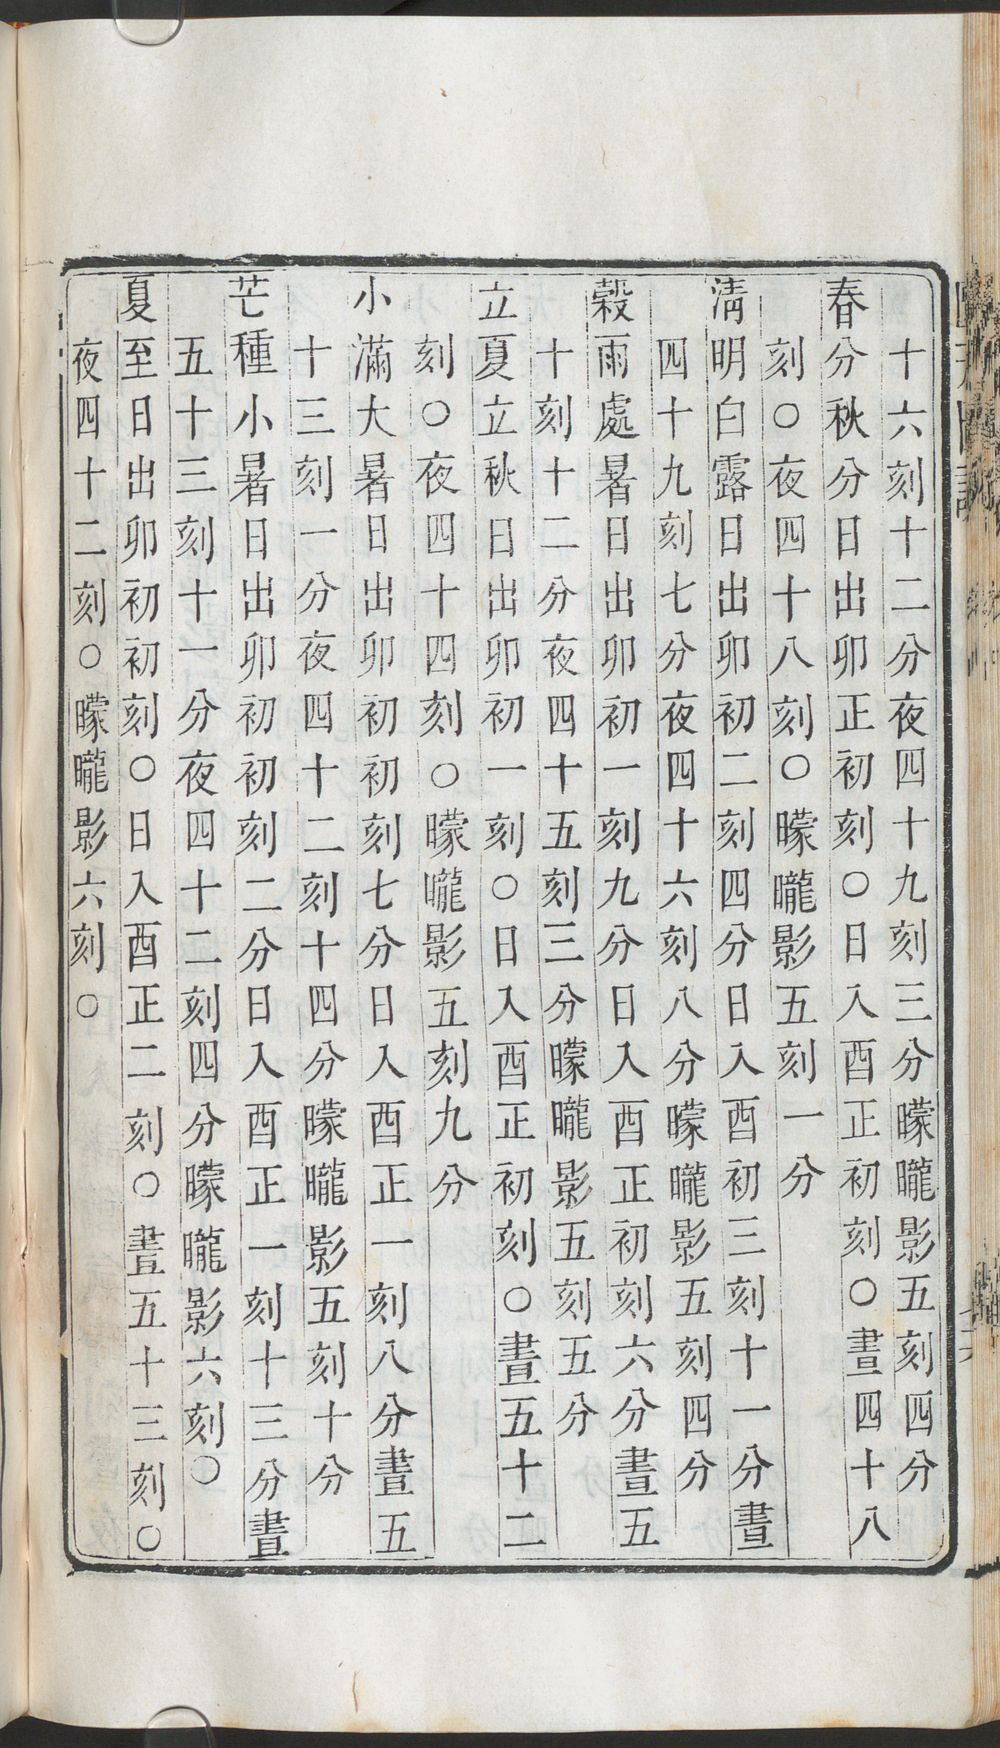 十六刻十二分夜四十九刻三分曚曨影五刻四分
春分秋分日出卯正初刻○日入酉正初刻○晝四十八
刻○夜四十八刻○曚曨影五刻一分
淸明白露日出卯初二刻四分日入酉初三刻十一分晝
四十九刻七分夜四十六刻八分曚曨影五刻四分
穀雨處暑日出卯初一刻九分日入酉正初刻六分晝五
十刻十二分夜四十五刻三分曚曨影五刻五分
立夏立秋日出卯初一刻○日入酉正初刻○晝五十二
刻○夜四十四刻○曚曨影五刻九分
小滿大暑日出卯初初刻七分日入酉正一刻八分晝五
十三刻一分夜四十二刻十四分曚曨影五刻十分
芒種小暑日出卯初初刻二分日入酉正一刻十三分晝
五十三刻十一分夜四十二刻四分曚曨影六刻○
夏至日出卯初初刻○日入酉正二刻○晝五十三刻○
夜四十二刻○曚曨影六刻○